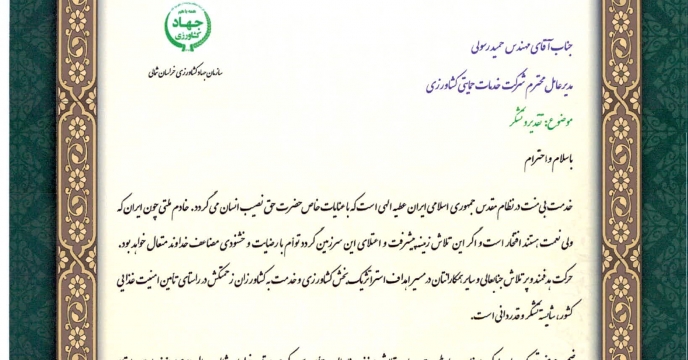 همه با هم
جهاد
کشاورزی
سازمان جهاد کشاورزی خراسان شمالی
جناب آقای مهندس حمید رسولی
مدیرعامل محترم شرکت خدمات حمایتی کشاورزی
موضوع: تقدیر و تشکر
باسلام و احترام
خدمت بی منت در نظام مقدس جمهوری اسلامی ایران عطیه الهی است که با عنایات خاص حضرت حق نصیب انسان می گردد. خادم ملتی چون ایران که
ولی نعمت هستند افتخار است و اگر این تلاش زمینه پیشرفت و اعتلای این سرزمین گردد توأم با رضایت و خشنودی مضاعف خداوند متعال خواهد بود.
حرکت هدفمند و پر تلاش جنابعالی و سایر همکارانتان در مسیر اهداف استراتژیک بخش کشاورزی و خدمت به کشاورزان زحمتکش در راستای تامین امنیت غذایی
کشور، شایسته تشکر و قدردانی است.